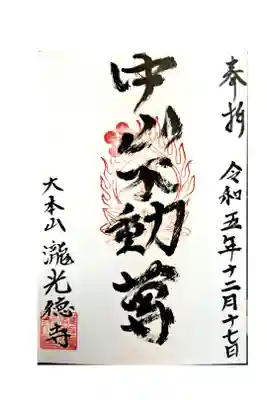 奉拝
令和五年十二月十七日
中山不動尊
大本山 瀧光徳寺